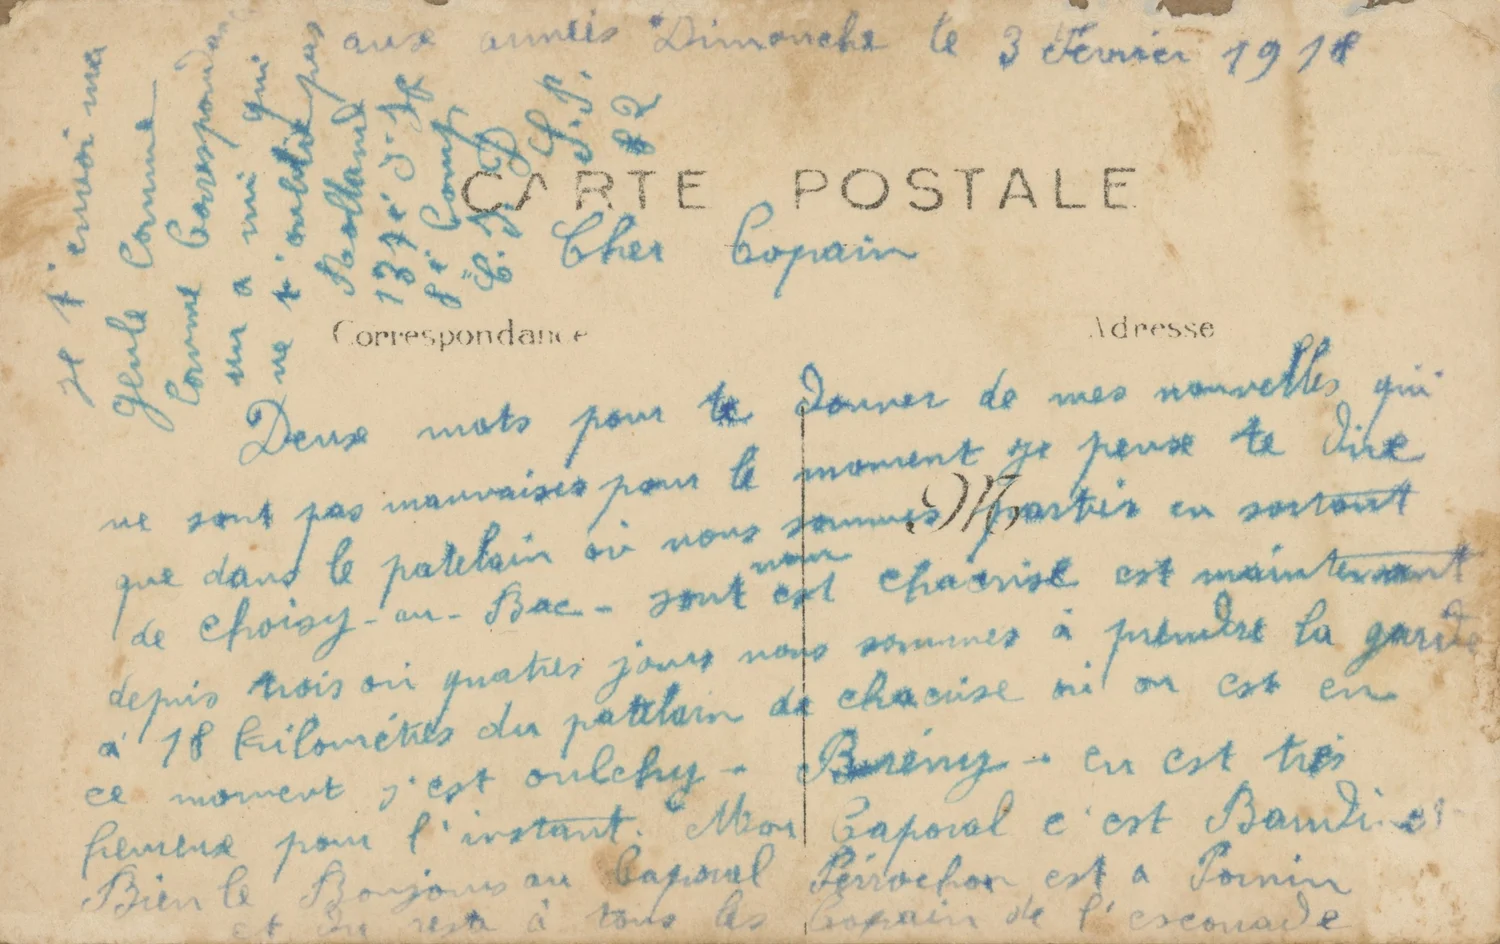 aux armées Dimanche le 3 Février 1918
CARTE POSTALE
Cher Copain
Correspondance
Adresse
Deux mots pour te donner de mes nouvelles qui
ne sont pas mauvaises pour le moment je peuse te dire
que dans le patelain où nous sommes partir en sortant
de Choisy-au-Bac- sont nour est chacrise est maintenant
depuis trois ou quatres jours nous sommes à prendre la garde
a 18 kilométres du patelain de chacrise ou on est en
ce moment s'est oulchy - Brény - on est très
heureux pour l'instant. Mon Caporal c'est
Bien le Boujours au Caporal Perrochon est a Pornin
et du reste à tous les Copain de l'escouade
Je t'envoi ma
gente Comme
Comme Corespondan
un a mi qui
ne t'oublie pas
Rolland
137e d'If
8e Comp
C.I.D
S.P.
82